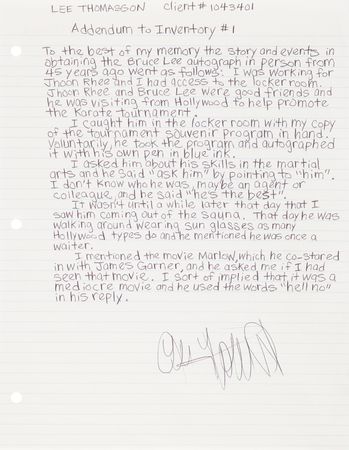 LEE THOMASSON Client # 1043401
Addendum to Inventory #1
To the best of my memory the story and events in
obtaining the Bruce Lee autograph in person from
45 years ago went as follows: I was working for
Jhoon Rhee and I had access to the locker room.
Jhoon Rhee and Bruce Lee were good friends and
he was visiting from Hollywood to help promote
the Karate tournament.
I caught him in the locker room with my copy
of the tournament souvenir program in hand.
Voluntarily, he took the program and autographed
it with his own pen in blue ink.
I asked him about his skills in the martial
arts and he said "ask him" by pointing to "him".
I don't know who he was, maybe an agent or
colleague, and he said "he's the best".
It wasn't until a while later that day that I
saw him coming out of the sauna. That day he was
walking around wearing sun glasses as many
Hollywood types do and he mentioned he was once a
waiter.
I mentioned the movie Marlow, which he co-stared
in with James Garner, and he asked me if I had
seen that movie. I sort of implied that it was a
mediocre movie and he used the words "hell no"
in his reply.